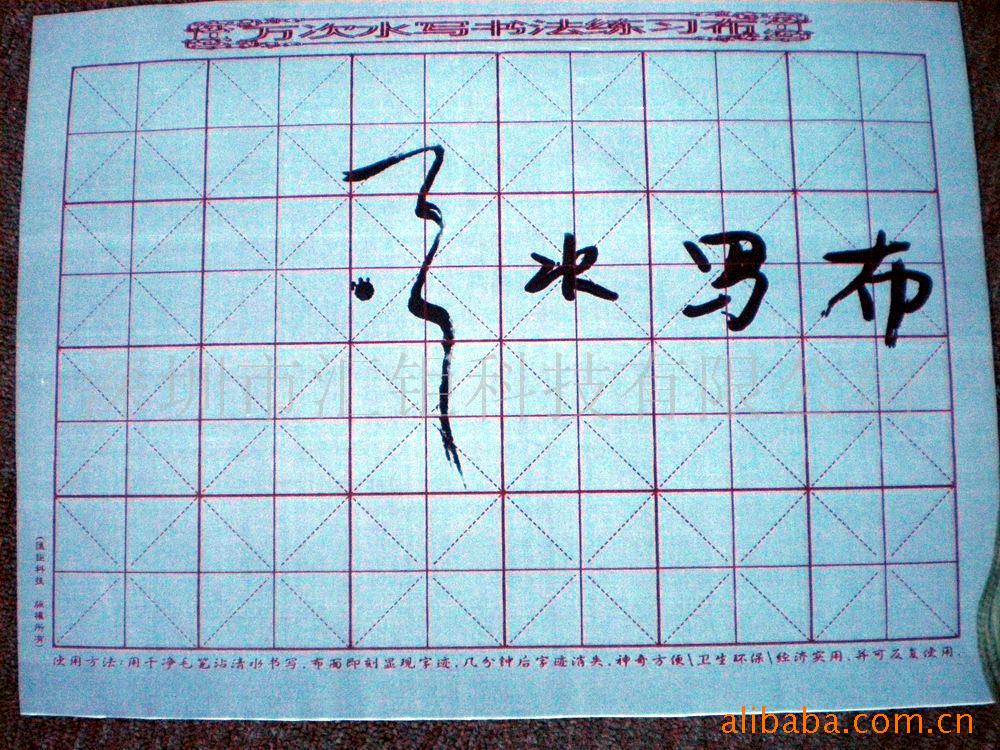 万次水写书法练习布
水写布
深圳市汇钜科技有限公司
(汇钜科技 版權所有)
使用方法:用干净毛笔沾清水书写,布面即刻显现字迹,几分钟后字迹消失,神奇方便\卫生环保\经济实用,并可反复使用.
alibaba.com.cn